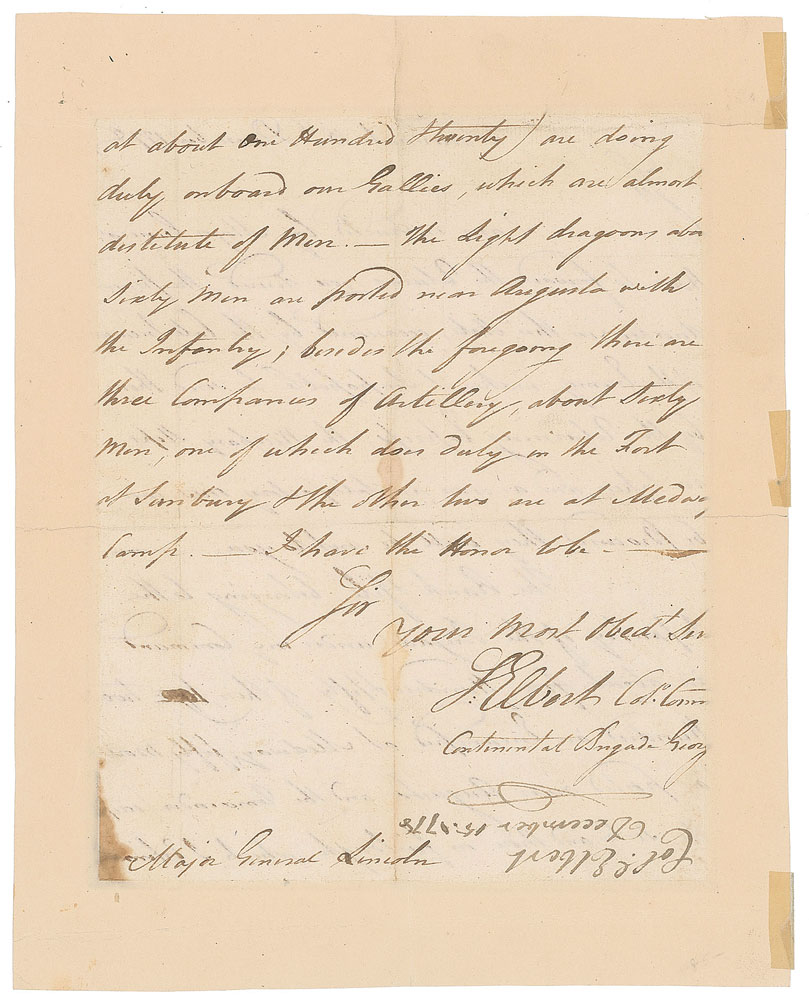 at about one Hundred & twenty) are doing
duty onboard our Gallies, which are almost
distitute of Men. — The Light dragoons abou
Sixty Men are posted near Augusta with
the Infantry; besides the foregoing there are
three Companies of Artillery, about Sixty
Men, one of which does duty in the Fort
at Sunbury & the other two are at Medway
Camp. — I have the Honor to be —
Sir
Your Most Obedt. Ser
S: Elbert Colo. Com
Continental Brigade Georg
Major General Lincoln
Colo. Elbert
December 15. 1778